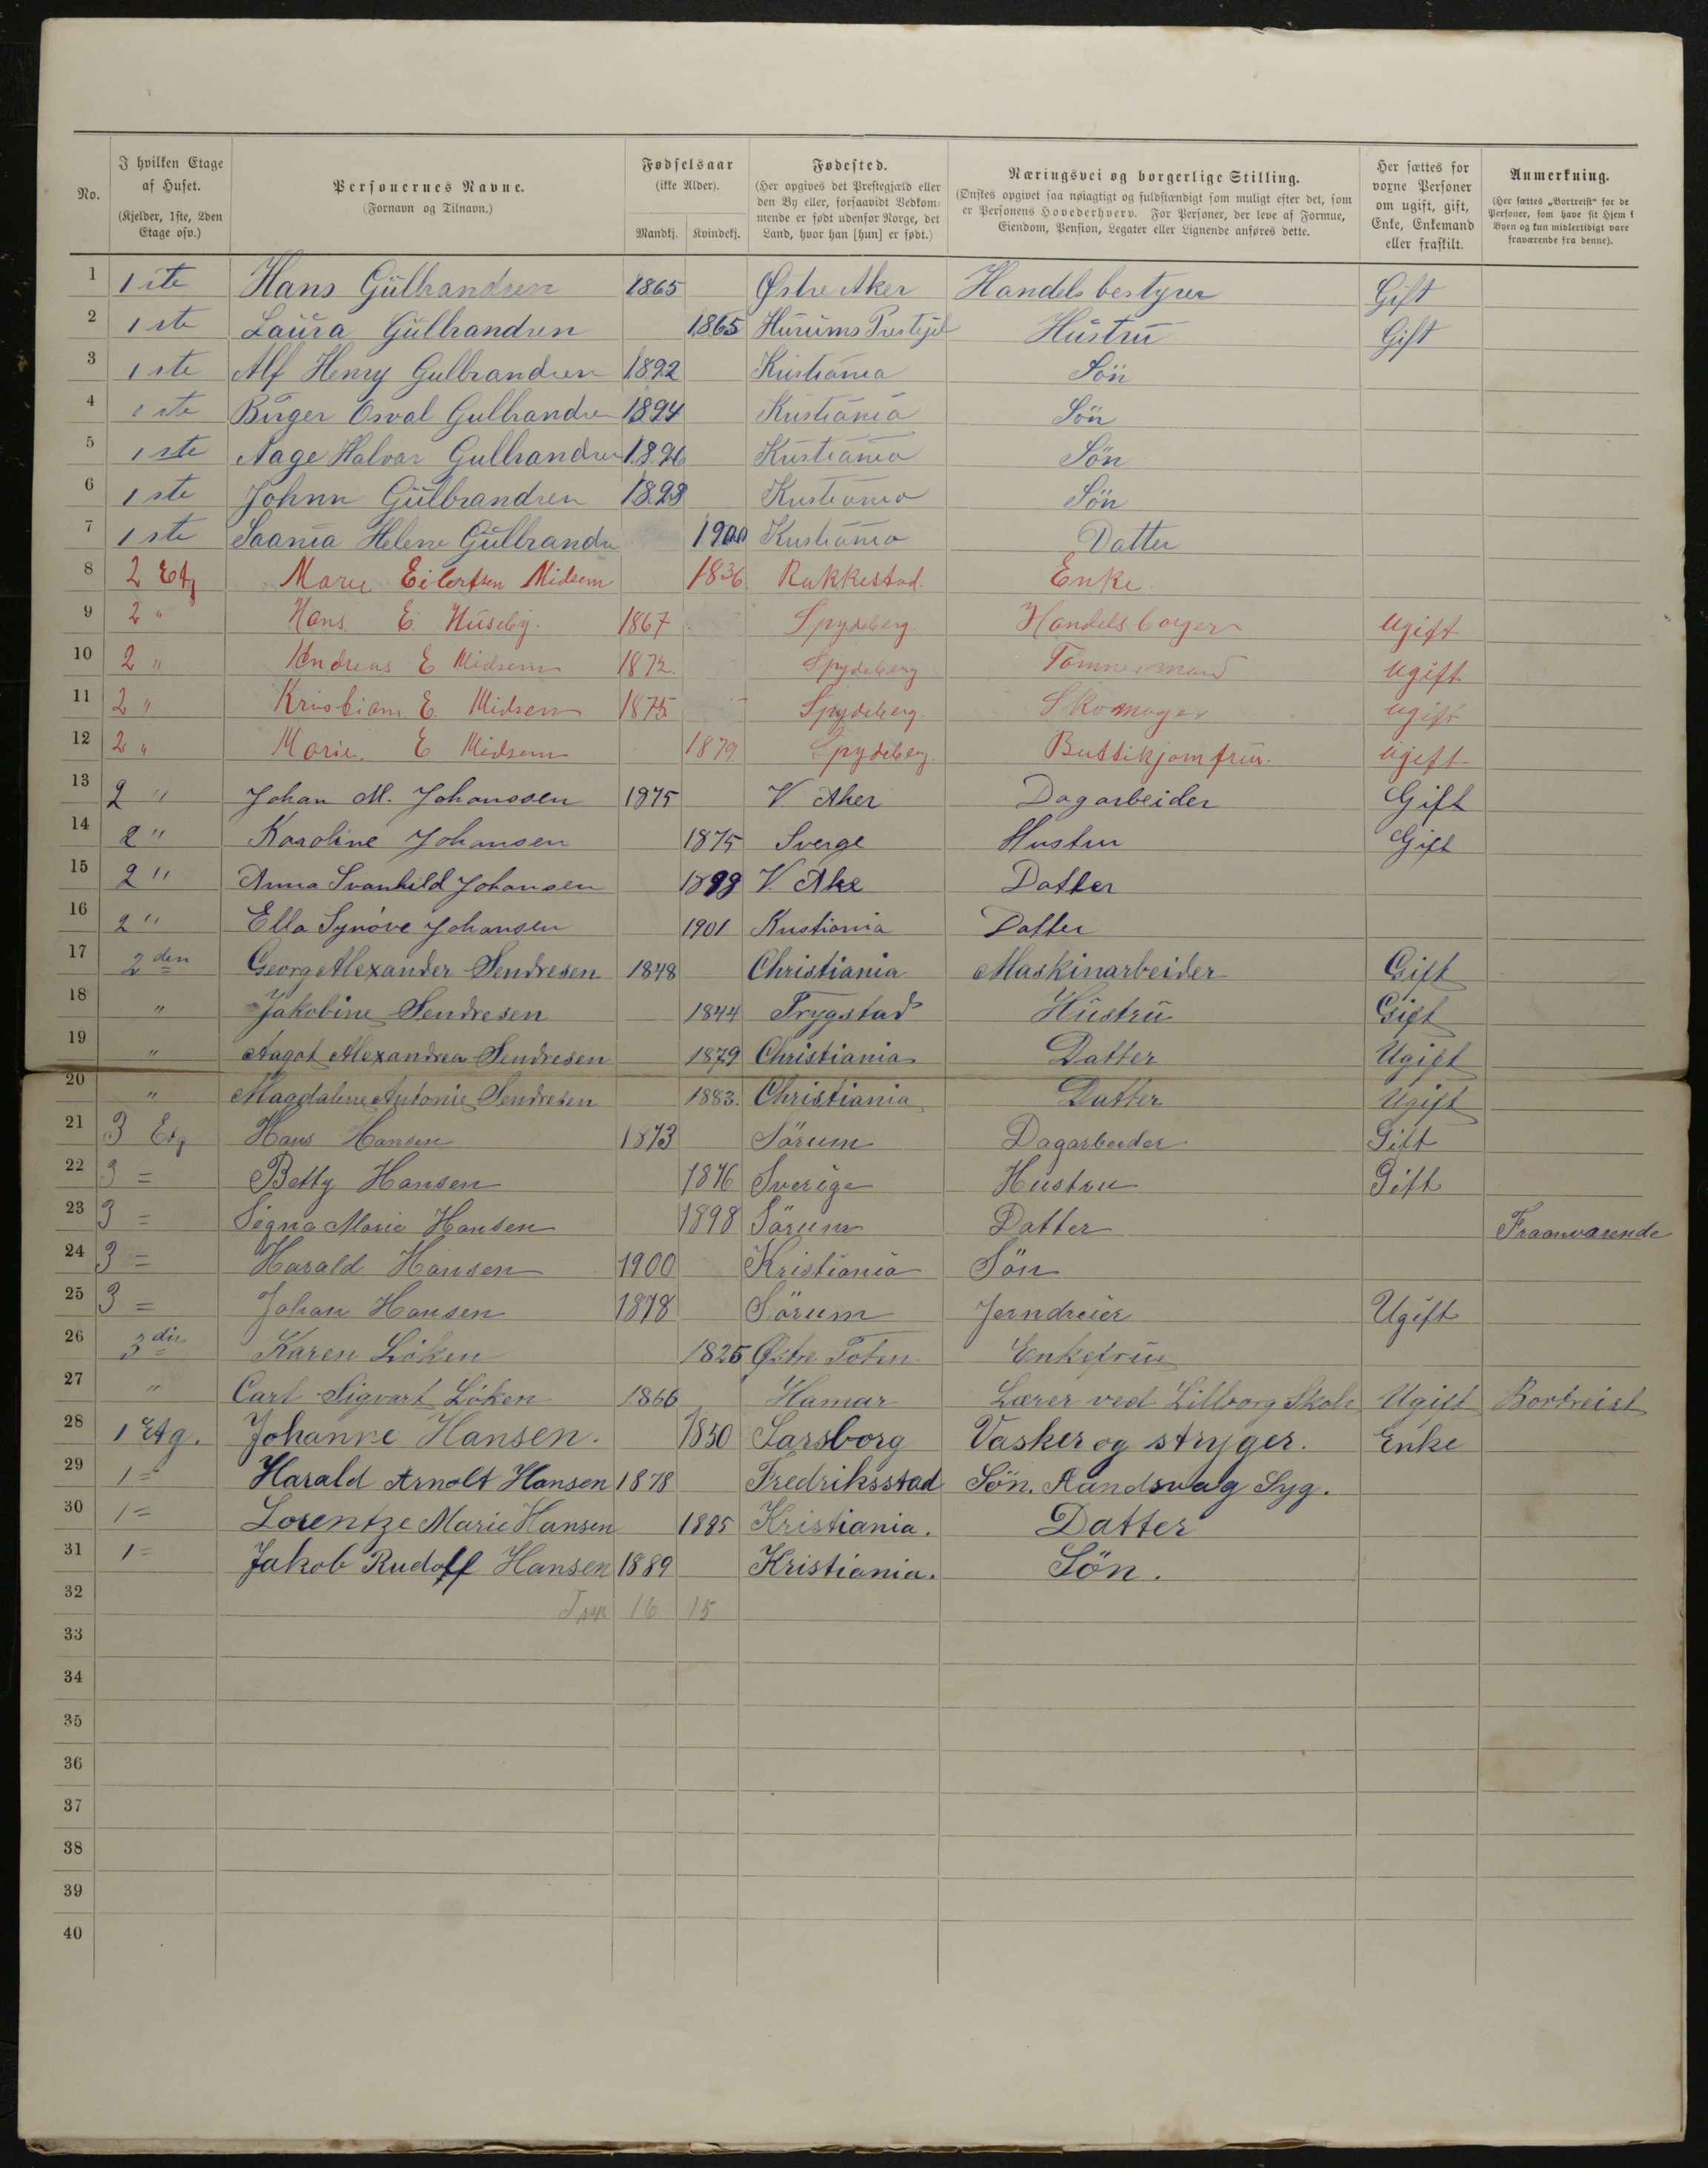 No. | I hvilken Etage af Huset. (Kjelder, 1ste, 2den Etage osv.) | Personernes Navne. (Fornavn og Tilnavn.) | Fødselsaar (ikke Alder). Mandkj. | Kvindekj. | Fødested. (Her opgives det Prestegjæld eller den By eller, forsaavidt Vedkommende er født udenfor Norge, det Land, hvor han [hun] er født.) | Næringsvei og borgerlige Stilling. (Ønskes opgivet saa nøiagtigt og fuldstændigt som muligt efter det, som er Personens Hovederhverv. For Personer, der leve af Formue, Eiendom, Pension, Legater eller Lignende anføres dette.) | Her sættes for voxne Personer om ugift, gift, Enke, Enkemand eller fraskilt. | Anmerkning. (Her sættes „Bortreist“ for de Personer, som have sit Hjem i Byen og kun midlertidigt vare fraværende fra denne).
1 | 1ste | Hans Gulbrandsen | 1865 | | Østre Aker | Handelsbestyrer | Gift
2 | 1ste | Laura Gulbrandsen | | 1865 | Hurums Prestejel | Hustru | Gift
3 | 1ste | Alf Henry Gulbrandsen | 1892 | | Kristiania | Sön
4 | 1ste | Birger Osval Gulbrandsen | 1894 | | Kristiania | Sön
5 | 1ste | Aage Halvar Gulbrandsen | 1896 | | Kristiania | Sön
6 | 1ste | Johnn Gulbrandsen | 1898 | | Kristiania | Sön
7 | 1ste | Helene Gulbrands | | 1900 | Kristiania | Datter
8 | 2 Etg | Marie Eilertsen Midsem | | 1836. | Rakkestad. | Enke
9 | 2 " | Hans. E. Huseby. | 1867 | | Spydeberg. | Handelsborger | Ugift
10 | 2 " | Andreas E Midsem | 1872. | | Spydeberg | Tømmermand | Ugift
11 | 2 " | Kristian E. Midsem | 1875 | | Spydeberg. | Skomager | Ugift
12 | 2 " | Marie. E Midsem | | 1879. | Spydeberg. | Buttikjomfru. | Ugift
13 | 2 " | Johan M. Johanssen | 1875 | | V Aker | Dagarbeider | Gift
14 | 2 " | Karoline Johansen | | 1875 | Sverge | Hustru | Gift
15 | 2 " | Anna Svanhild Johansen | | 1899 | V. Ake | Datter
16 | 2 " | Ella Synöve Johansen | | 1901 | Kristiania | Datter
17 | 2den | Georg Alexander Sendresen | 1848 | | Christiania | Maskinarbeider | Gift
18 | " | Jakobine Sendresen | | 1844 | Trygstad | Hustru | Gift
19 | " | Aagot Alexandrea Sendresen | | 1879 | Christiania | Datter | Ugift
20 | " | Magdalene Antonie Sendresen | | 1883. | Christiania | Datter | Ugift
21 | 3 Etg | Hans Hansen | 1873 | | Sörum | Dagarbeider | Gift
22 | 3 = | Betty Hansen | | 1876 | Sverige | Hustru | Gift
23 | 3 = | Signa Marie Hansen | | 1898 | Sörum | Datter | | Fraanvarende
24 | 3 = | Harald Hansen | 1900 | | Kristiania | Sön
25 | 3 = | Johan Hansen | 1878 | | Sörum | Jerndreier | Ugift
26 | 3die | Karen Löken | | 1825 | Østre Toten | Enkefrue
27 | " | Carl Sigvart Löken | 1866 | | Hamar | Lærer ved Lilleborg Skole | Ugift | Bortreist
28 | 1 Etg. | Johanne Hansen. | | 1850 | Sarsborg | Vasker og stryger. | Enke
29 | 1 = | Harald Arnolt Hansen | 1878 | | Fredriksstad | Sön. Aandsvag Syg.
30 | 1 = | Lorentze Marie Hansen | | 1885 | Kristiania. | Datter
31 | 1 = | Jakob Rudolf Hansen | 1889 | | Kristiania. | Sön.
32 | | | 16 | 15
33
34
35
36
37
38
39
40